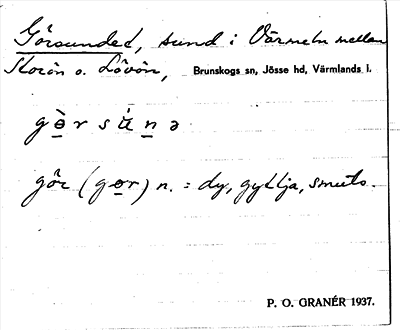 Görsundet, sund i Värmeln mellan
Storön o. Lövön, Brunskogs sn, Jösse hd, Värmlands l.
gö̀rsúnə
gör (gör) n. = dy, gyttja, smuts.
P. O. GRANÉR 1937.